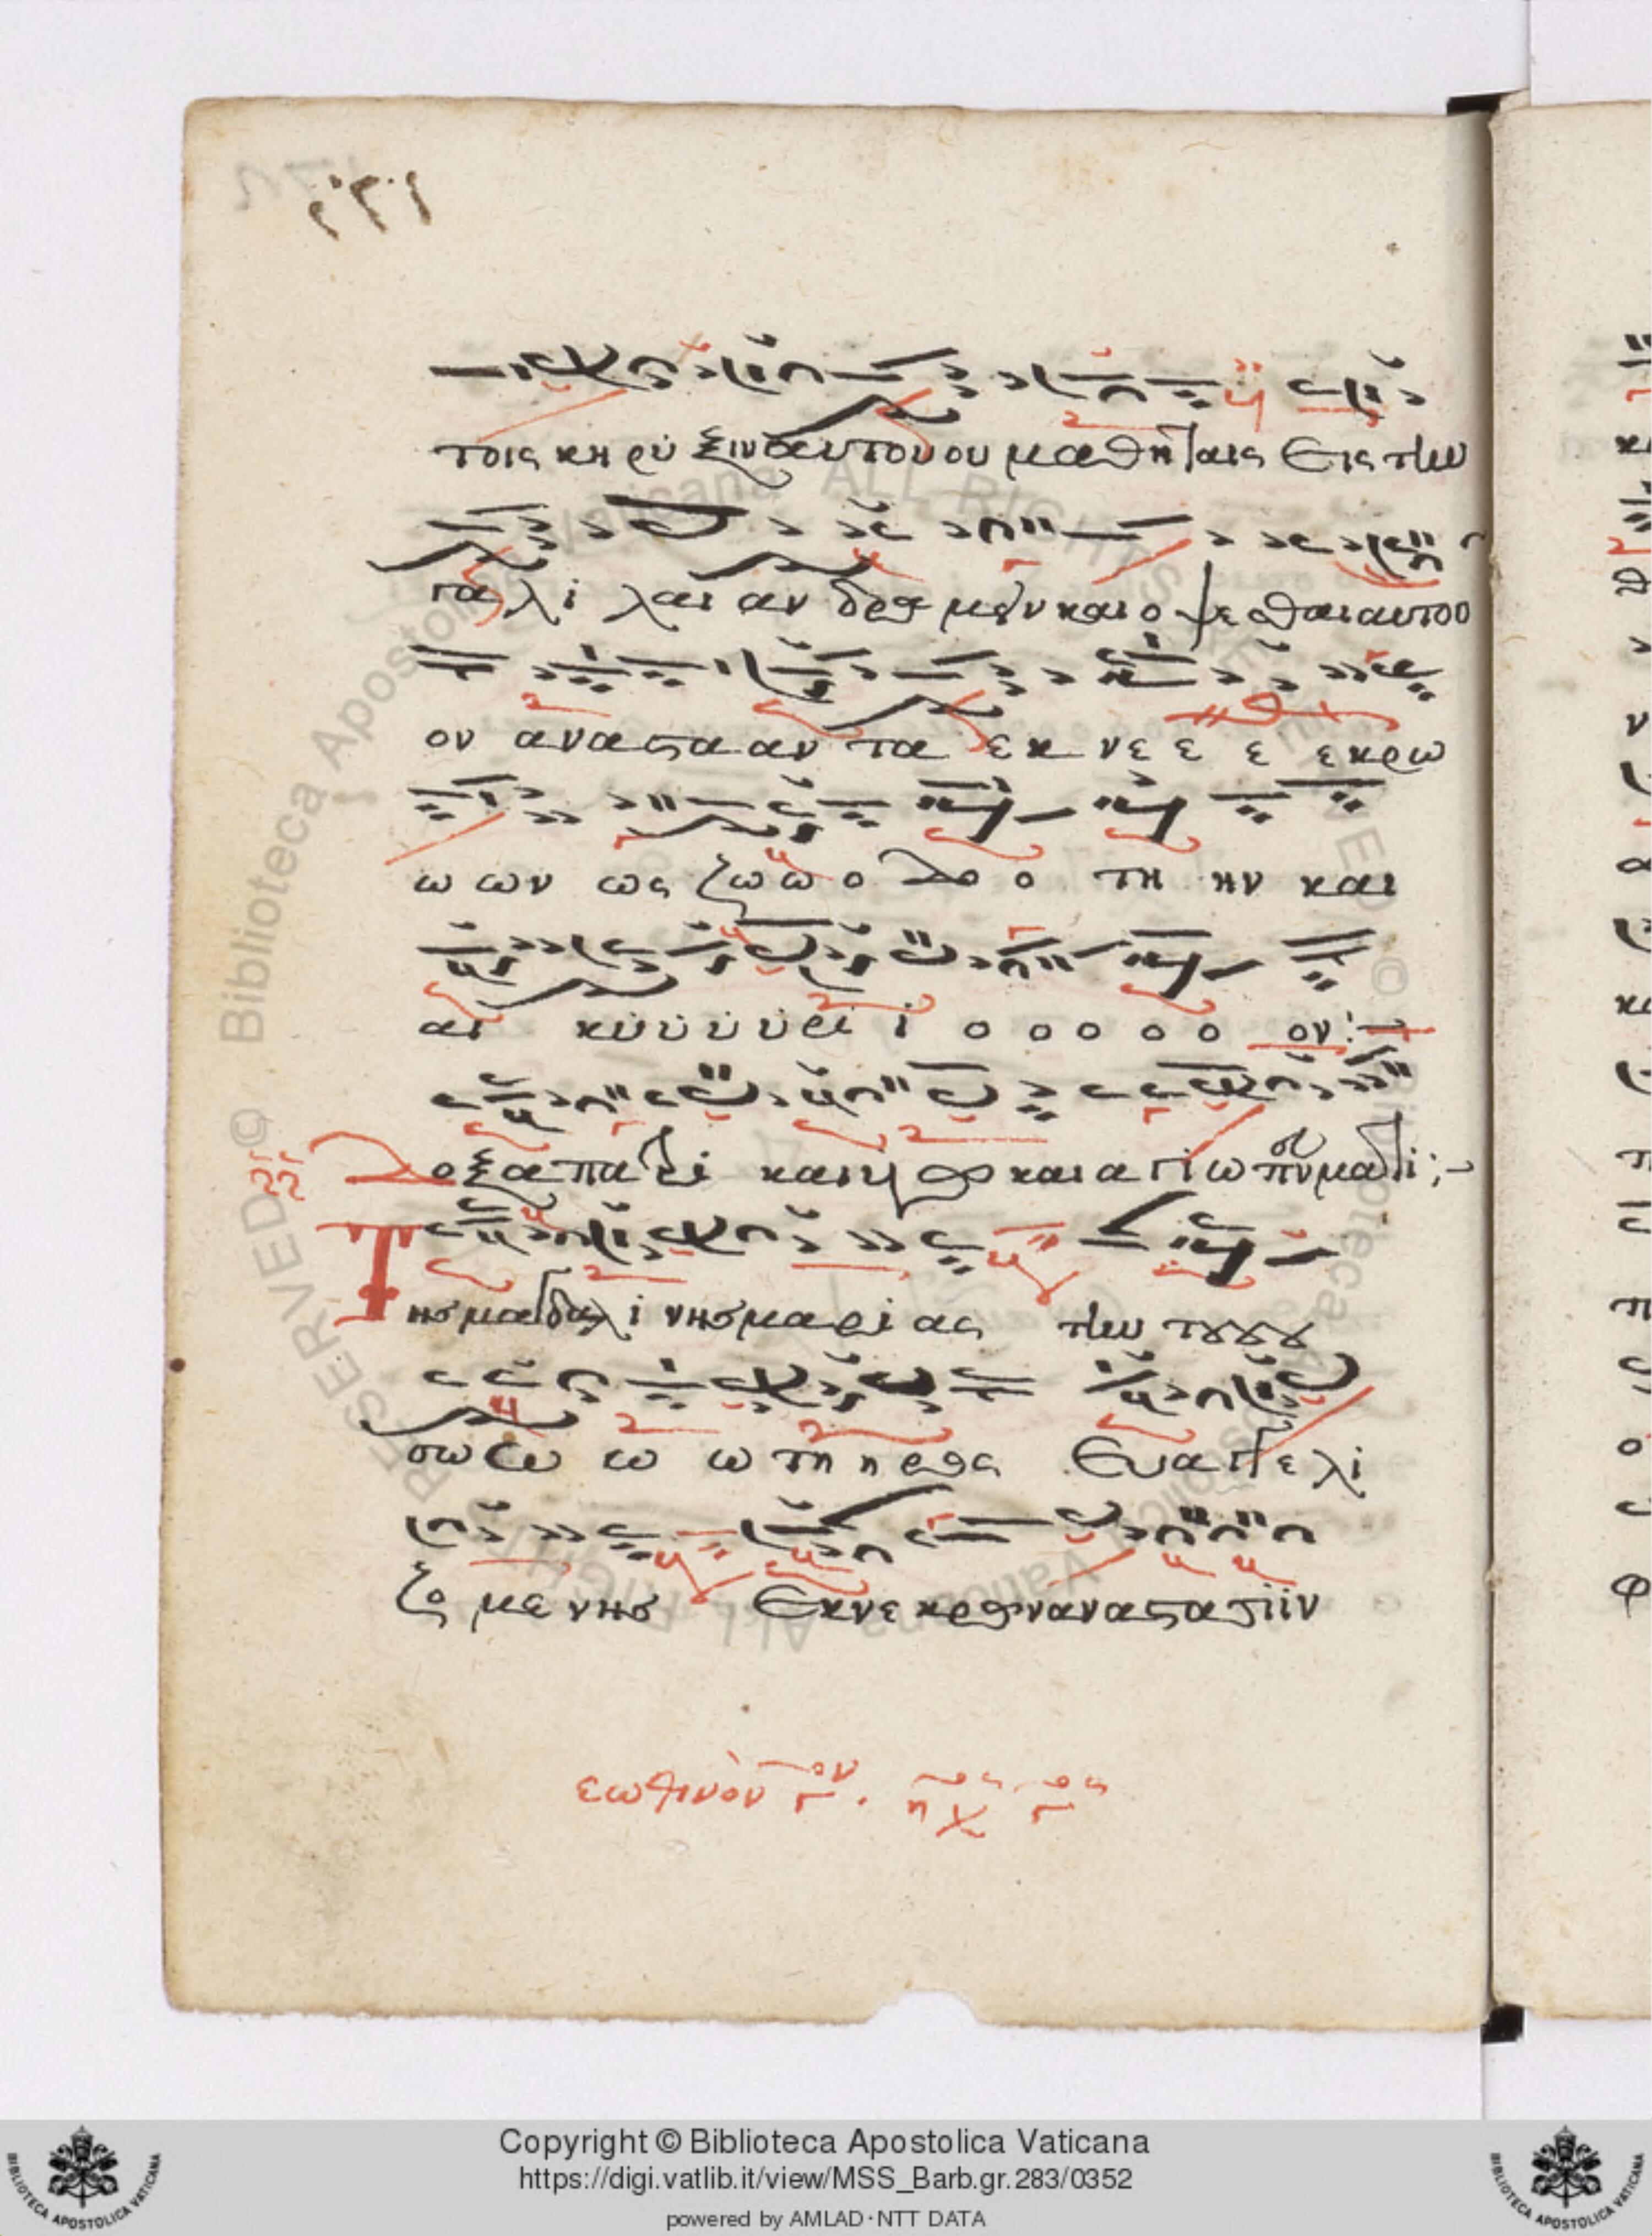 τοις κη ρύ ξιν αυτου ου μαθηταις Εις την
γαλι λαι αν δρα μων και οψεσθαι αυτο
ον ανασταν τα εκ νε ε ε εκρω
ω ων ως ζω ω ο δο ο τη ην και
αι κυ ϋ ϋ ϋρι ϊ ο ο ο ο ο ον:
Δοξα πατρί και υιω και αγίω πνματι:
Της μαγδαλι νης μαρί ας την του ου ου
σω ω ω ω τη ηρος Ευαγγελι
ζο με νης Εκνεκρων αναστασιϊν
εωθινὸν γον. ηχος γος
Copyright © Biblioteca Apostolica Vaticana
https://digi.vatlib.it/view/MSS_Barb.gr.283/0352
powered by AMLAD·NTT DATA
© Biblioteca Apostolica Vaticana ALL RIGHTS RESERVED